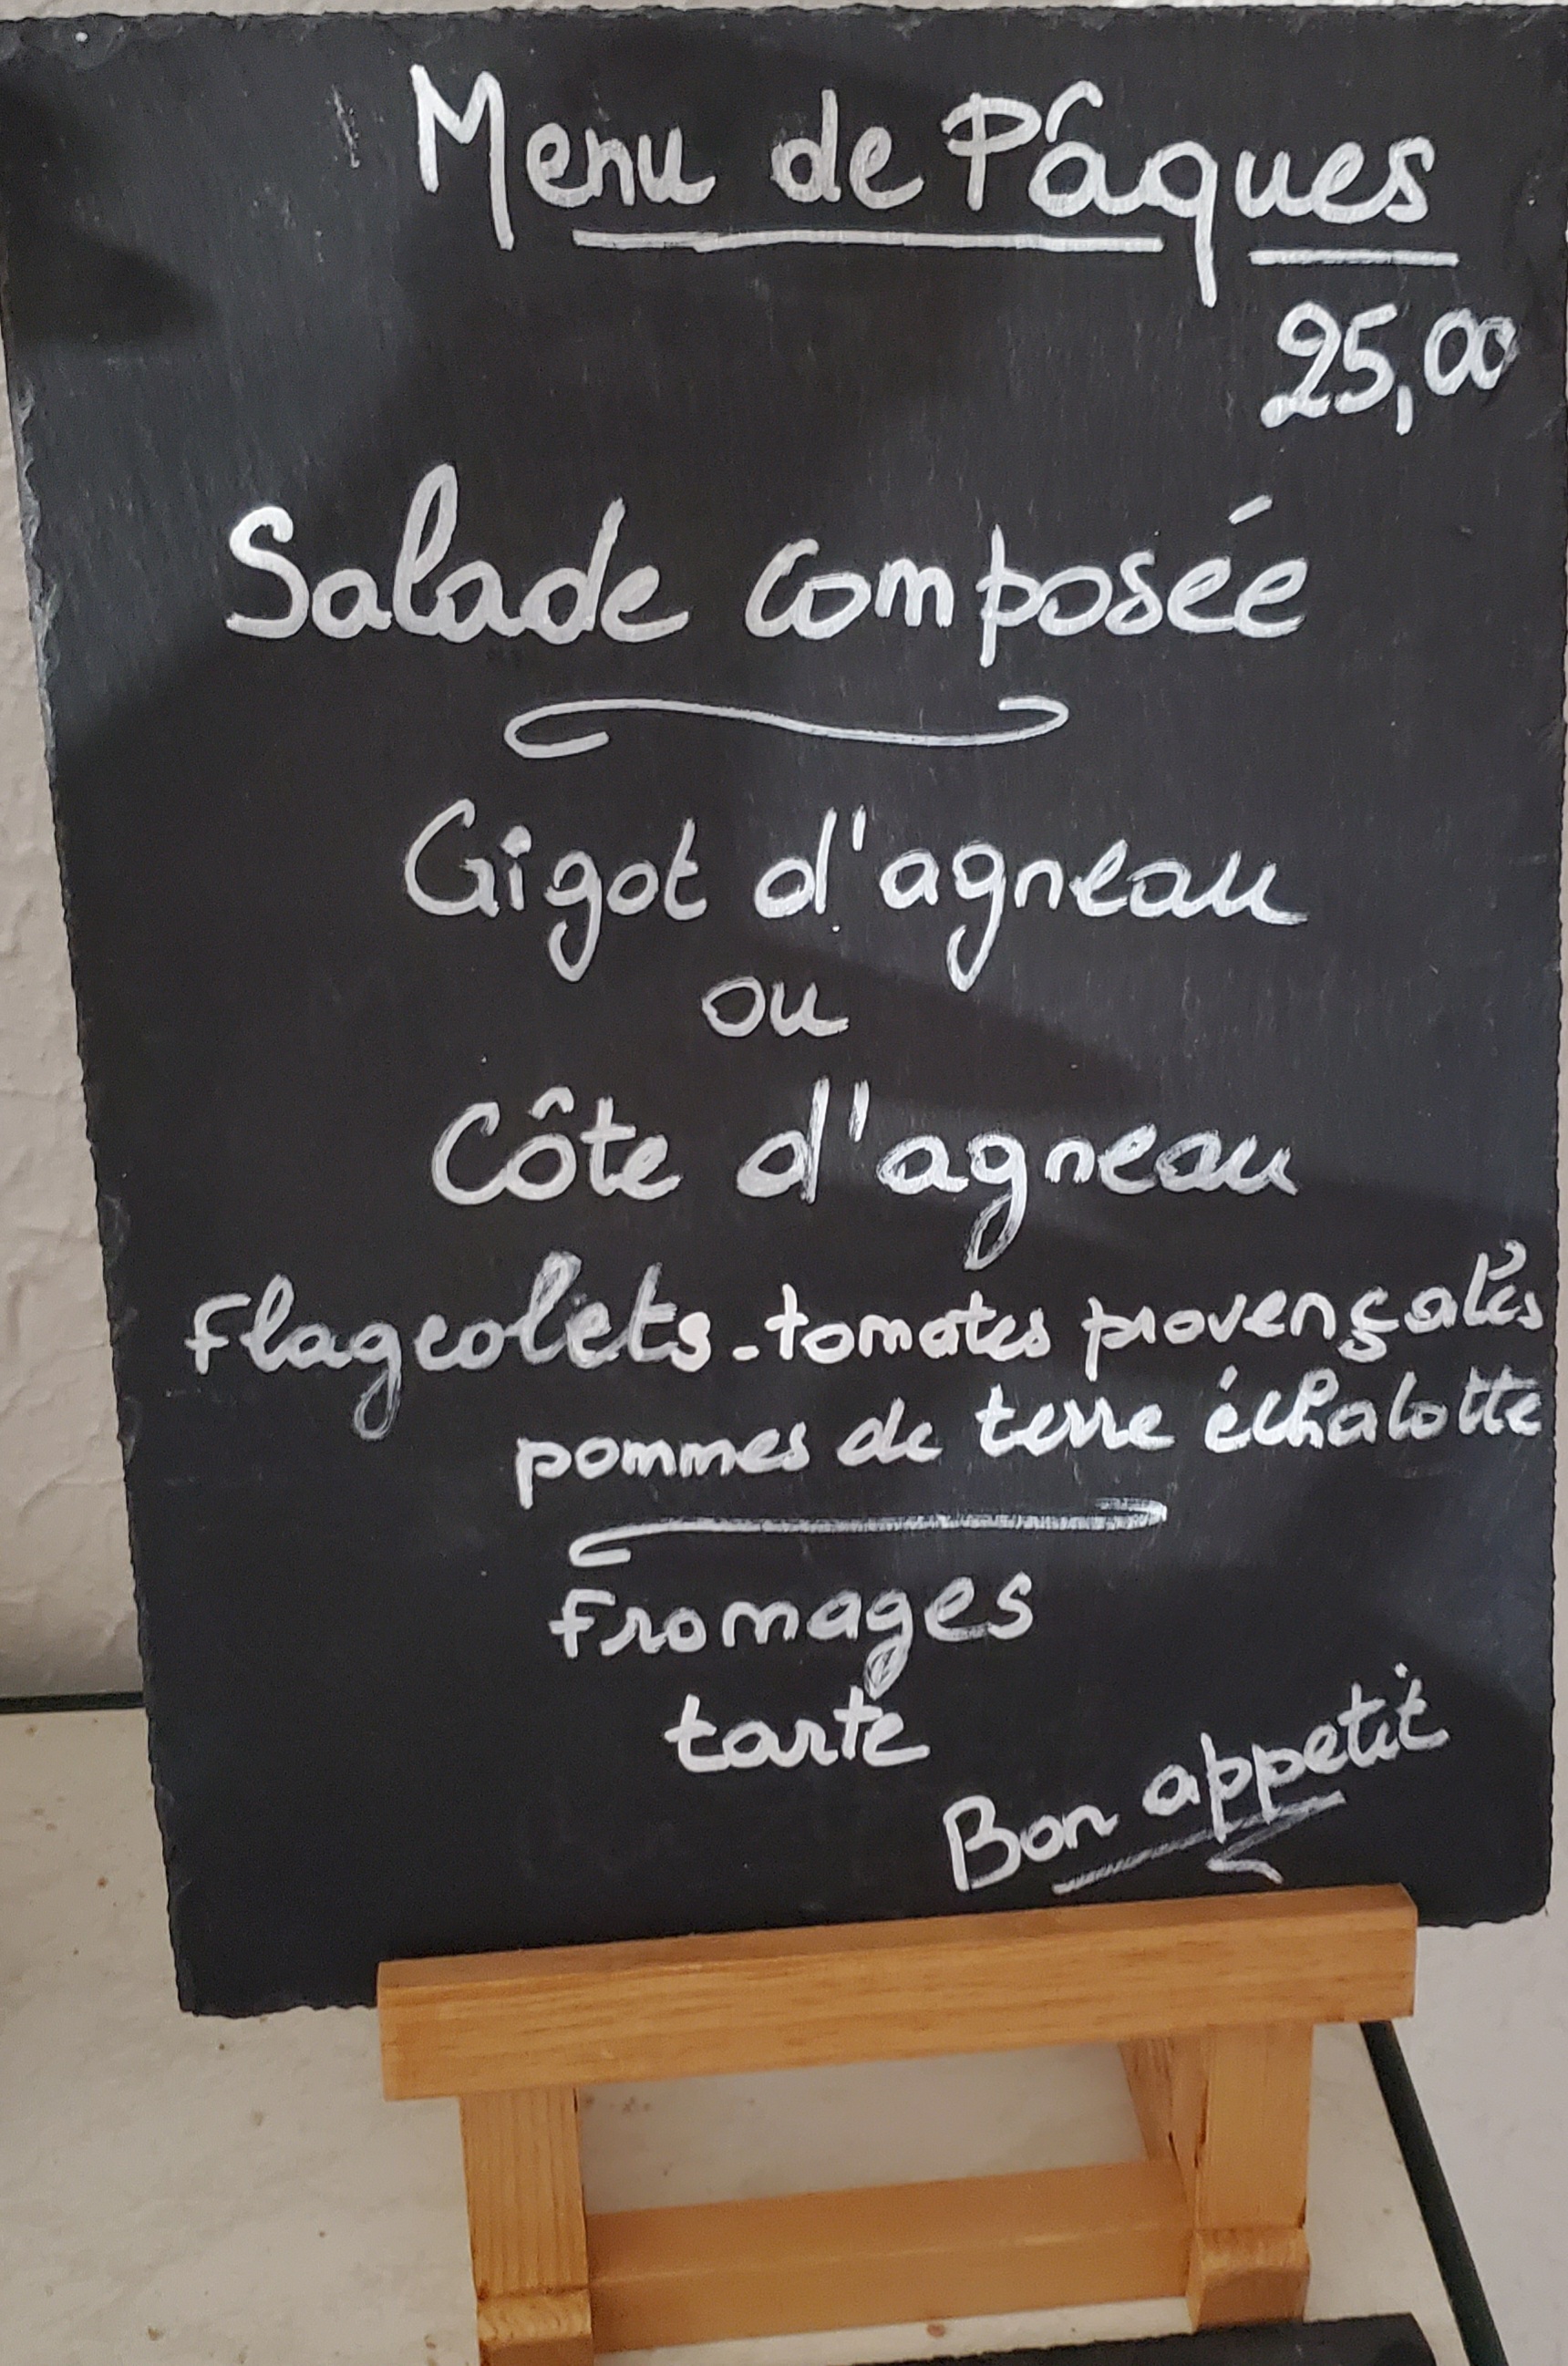 Menu de Pâques
25,00
Salade composée
Gigot d'agneau
ou
Côte d'agneau
Flageolets - tomates provençales
pommes de terre échalotte
Fromages
tarte
Bon appetit